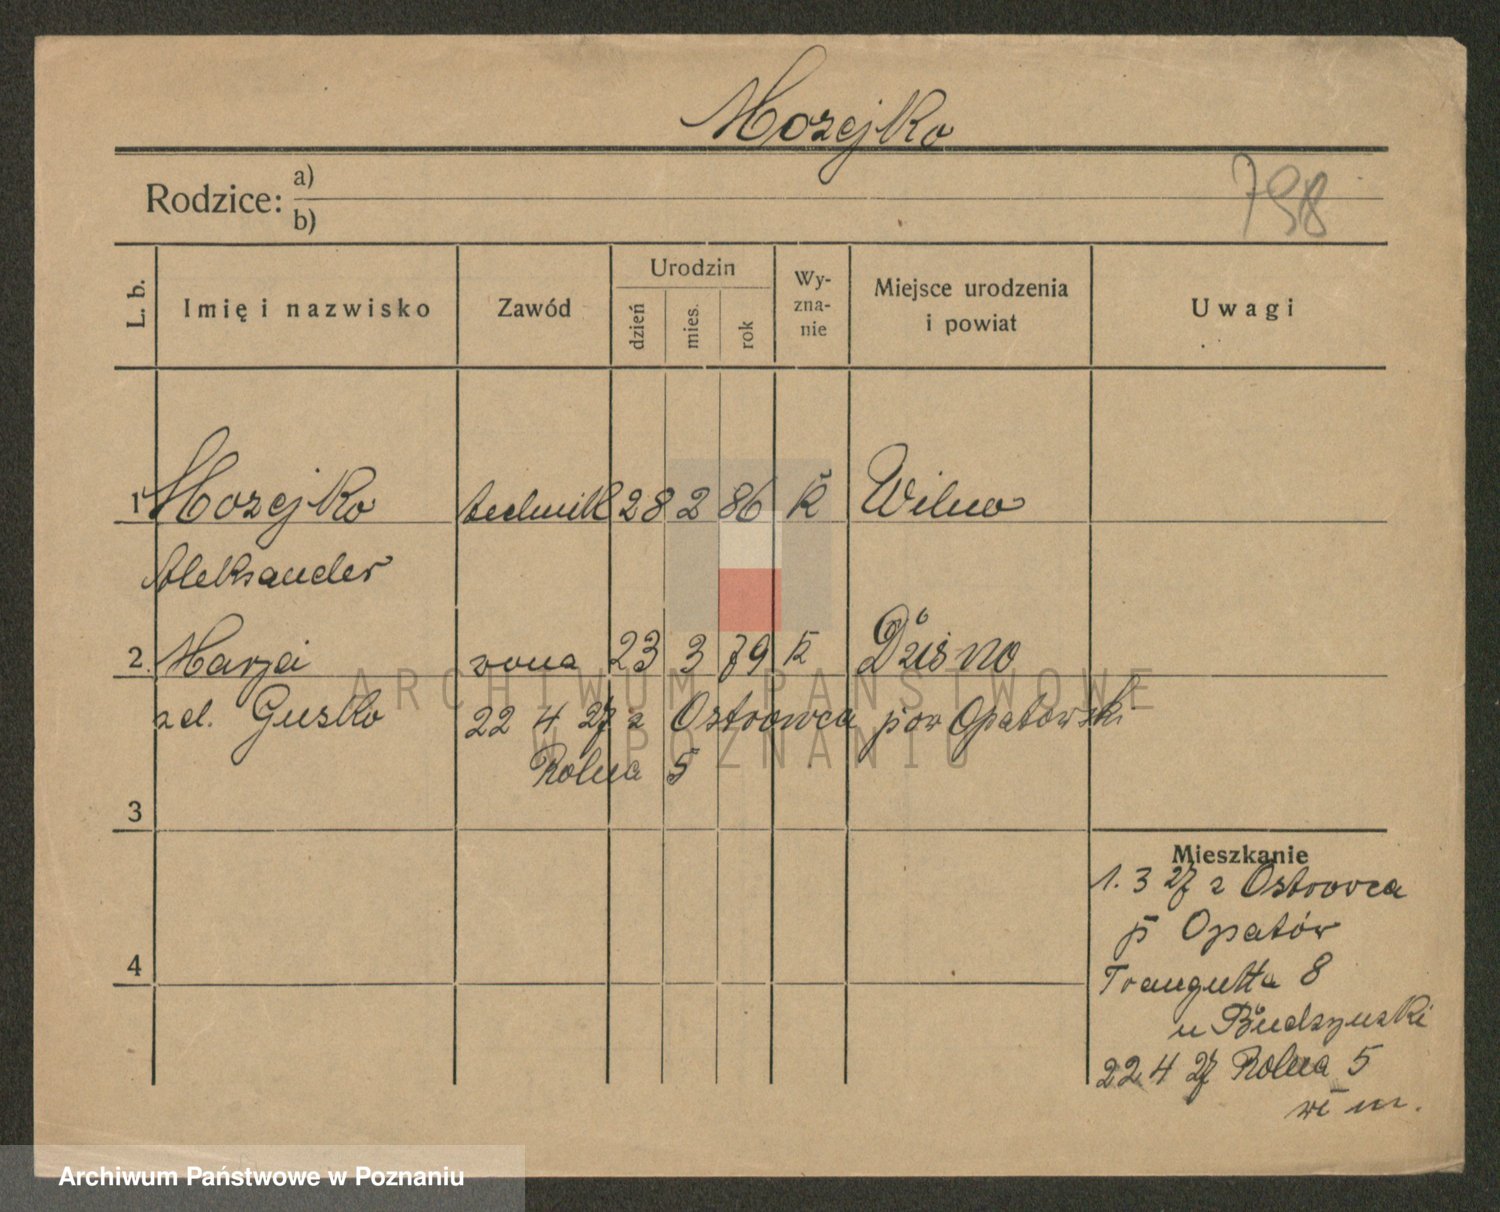 Mozejko
Rodzice: a)
b)
798
L. b.
Imię i nazwisko
Zawód
Urodzin
dzień
mies.
rok
Wy-
zna-
nie
Miejsce urodzenia
i powiat
Uwagi
1 Mozejko technik 28 2 86 k Wilno
Aleksander
2. Marja żona 23 3 79 k Dzisno
zd. Gusko 22 4 27 z Ostrowca pow Opatowski
Rolna 5
3
4
Mieszkanie
1. 3 27 z Ostrowca
p Opatów
Traugutta 8
u Budzynski
22 4 27 Rolna 5
wł m.
ARCHIWUM PAŃSTWOWE
W POZNANIU
Archiwum Państwowe w Poznaniu